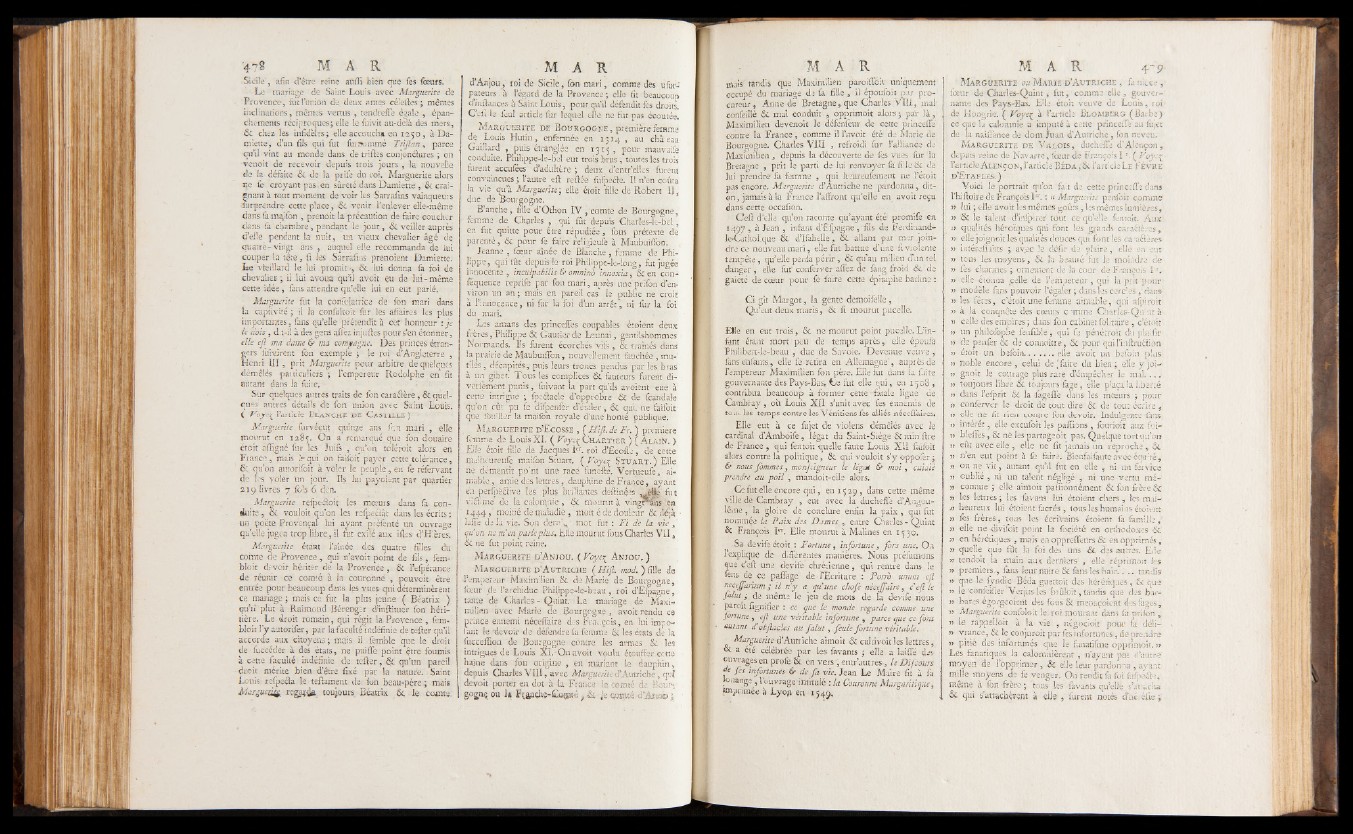 478 M A R
Sicile, afin d'être reine aussi bien que ses sœurs.
Le mariage de Saint Louis avec Marguerite de
Provence, fut l'union de deux ames célestes ; mêmes
inclinations, mêmes vertus, tendresse égale, épan-
chemens réciproques ; elle le suivit au-delà des mers,
& chez les infidèles ; elle accoucha en 1250, à Da-
miette, d'un fils qui fut surnommé Tristan, parce
qu'il vint au monde dans de tristes conjonctures ; on
venoit de recevoir depuis trois jours, la nouvelle
de la défaite & de la prise du roi. Marguerite alors
ne se croyant pas en sûreté dans Damiette, & crai-
gnant à tout moment de voir les Sarrasins vainqueurs
surprendre cette place, & venir l'enlever elle-même
dans sa maison, prenoit la précaution de faire coucher
dans sa chambre, pendant le jour, & veiller auprès
d'elle pendant la nuit, un vieux chevalier âgé de
quatre-vingt ans, auquel elle recommanda de lui
couper la tête, si les Sarrasins prenoient Damiette.
Le vieillard le lui promit, & lui donna sa foi de
chevalier ; il lui avoua qu'il avoit eu de lui-même
cette idée, sans attendre qu'elle lui en eut parlé.
Marguerite fut la consolatrice de son mari dans
la captivité ; il la consultoit sur les affaires les plus
importantes, sans qu'elle prétendît à cet honneur : je
le dois, disoit-il à des gens assez injustes pour s'en étonner,
elle est ma dame & ma compagne. Des princes étran-
gers suivirent son exemple ; le roi d'Angleterre,
Henri III, prit Marguerite pour arbitre de quelques
démêlés particuliers ; l'empereur Rodolphe en fit
autant dans la suite.
Sur quelques autres traits de son caractère, & quel-
ques autres détails de son union avec Saint Louis.
( Voyez l'article BLANCHE DE CASTILLE )
Marguerite survécut quinze ans son mari, elle
mourut en 1285. On a remarqué que son douaire
étoit assigné sur les Juifs, qu'on toléroit alors en
France, mais à qui on faisoit payer cette tolérance,
& qu'on autorisoit à voler le peuple, en se réservant
de les voler un jour. Ils lui payoient par quartier
219 livres 7 sols 6 den.
Marguerite respectoit les mœurs dans sa con-
duite, & vouloit qu'on les respectât dans les écrits ;
un poète Provençal lui ayant présenté un ouvrage
qu'elle jugea trop libre, il fut exilé aux isles d'Hières.
Marguerite étant l'aînée des quatre filles du
comte de Provence, qui n'avoit point de fils, sem-
bloit devoir hériter de la Provence, & l'espérance
de réunir ce comté à la couronne, pouvoit être
entrée pour beaucoup dans les vues qui déterminèrent
ce mariage ; mais ce fut la plus jeune ( Béatrix )
qu'il plut à Raimond Bérenger d'instituer son héri-
tière. Le droit romain, qui régit la Provence, sem-
bloit l'y autoriser, par la faculté indéfinie de tester qu'il
accorde aux citoyens ; mais il semble que le droit
de succéder à des états, ne puisse point être soumis
à cette faculté indéfinie de tester, & qu'un pareil
droit mérite bien d'être fixé par la nature. Saint
Louis respecta le testament de son beau-père ; mais
Marguerite regarda toujours Béatrix & le comte
M A R
d'Anjou, roi de Sicile, son mari, comme des usur-
pateurs à l'égard de la Provence ; elle fit beaucoup
d'instances à Saint Louis, pour qu'il défendît ses droits.
C'est le seul article sur lequel elle ne fut pas écoutée.
MARGUERITE DE BOURGOGNE, première femme
de Louis Hutin, enfermée en 1314, au château
Gaillard, puis étranglée en 1315, pour mauvaise
conduite. Philippe-le-bel eut trois brus, toutes les trois
furent accusées d'adultère ; deux d'entr'elles furent
convaincues ; l'autre est restée suspecte. Il n'en coûta
la vie qu'à Marguerite ; elle étoit fille de Robert II,
duc de Bourgogne.
Blanche, fille d'Othon IV, comte de Bourgogne,
femme de Charles, qui fût depuis Charles-le-bel,
en fut quitte pour être répudiée, sous prétexte de
parenté, & pour se faire religieuse à Maubuisson.
Jeanne, sœur aînée de Blanche, femme de Phi-
lippe, qui fût depuis le roi Philippe-le-long, fut jugée
innocente, inculpabilis & omninò innoxia, & en con-
séquence reprise par son mari, après une prison d'en-
viron un an ; mais en pareil cas le public ne croit
à l'innocence, ni sur la foi d'un arrêt, ni sur la foi
du mari.
Les amans des princesses coupables étoient deux
frères, Philippe & Gautier de Launai, gentilshommes
Normands. Ils furent écorchés vifs, & traînés dans
la prairie de Maubuisson, nouvellement fauchée, mu-
tilés, décapités, puis leurs troncs pendus par les bras
à un gibet. Tous les complices & fauteurs furent di-
versement punis, suivant la part qu'ils avoient eue à
cette intrigue ; spectacle d'opprobre & de scandale
qu'on eût pu se dispenser d'étaler, & qui ne faisoit
que souiller la maison royale d'une honte publique.
MARGUERITE D'ÉCOSSE, ( Hist. de Fr. ) première
femme de Louis XI. ( Voyez CHARTIER ) ( ALAIN. )
Elle étoit fille de Jacques Ier. roi d'Ecosse, de cette
malheureuse maison Stuart. ( Voyez STUART. ) Elle
ne démentit point une race funeste. Vertueuse, ai-
mable, amie des lettres, dauphine de France, ayant
en perspective les plus brillantes destinées, elle fut
victime de la calomnie, & mourut à vingt ans en
1444, moitié de maladie, moitié de douleur & déjà
lasse de la vie. Son dernier mot fut : Fi de la vie,
qu'on ne m'en parle plus. Elle mourut sous Charles VII,
& ne fut point reine.
MARGUERITE D'ANJOU. ( Voyez ANJOU. )
MARGUERITE D'AUTRICHE ( Hist. mod. ) fille de
l'empereur Maximilien & de Marie de Bourgogne,
sœur de l'archiduc Philippe-le-beau, roi d'Espagne,
tante de Charles-Quint. Le mariage de Maxi-
milien avec Marie de Bourgogne, avoit rendu ce
prince ennemi nécessaire des François, en lui impo-
sant le devoir de défendre sa femme & les états de la
succession de Bourgogne contre les armes & les
intrigues de Louis XI. On avoit voulu étouffer cette
haine dans son origine, en mariant le dauphin,
depuis Charles VIII, avec Marguerite d'Autriche, qui
devoit porter en dot à la France le comté de Bour-
gogne ou la Franche-Comté, & le comté d'Artois ;
M A R
mais tandis que Maximilien paroissoit uniquement
occupé du mariage de sa fille, il épousoit par pro-
cureur, Anne de Bretagne, que Charles VIII, mal
conseillé & mal conduit, opprimoit alors ; par là,
Maximilien devenoit le défenseur de cette princesse
contre la France, comme il l'avoit été de Marie de
Bourgogne. Charles VIII, refroidi sur l'alliance de
Maximilien, depuis la découverte de ses vues sur la
Bretagne, prit le parti de lui renvoyer sa fille & de
lui prendre sa femme, qui heureusement ne l'étoit
pas encore. Marguerite d'Autriche ne pardonna, dit-
on, jamais à la France l'affront qu'elle en avoit reçu
dans cette occasion.
C'est d'elle qu'on raconte qu'ayant été promise en
1497, à Jean, infant d'Espagne, fils de Ferdinand-
le-Catholique & d'Isabelle, & allant par mer join-
dre ce nouveau mari, elle fut battue d'une si violente
tempête, qu'elle pensa périr, & qu'au milieu d'un tel
danger, elle sut conserver assez de sang froid & de
gaieté de cœur pour se faire cette épitaphe badine :
Ci gît Margot, la gente demoiselle,
Qu'eut deux maris, & si mourut pucelle.
Elle en eut trois, & ne mourut point pucelle. L'in-
fant étant mort peu de temps après, elle épousa
Philibert-le-beau, duc de Savoie. Devenue veuve,
sans enfans, elle se retira en Allemagne, auprès de
l'empereur Maximilien son père. Elle fut dans la suite
gouvernante des Pays-Bas. Ce fut elle qui, en 1508,
contribua beaucoup à former cette fatale ligue de
Cambray, où Louis XII s'unit avec ses ennemis de
tous les temps contre les Vénitiens ses alliés nécessaires.
Elle eut à ce sujet de violens démêlés avec le
cardinal d'Amboise, légat du Saint-Siège & ministre
de France, qui sentoit quelle faute Louis XII faisoit
alors contre la politique, & qui vouloit s'y opposer ;
& nous sommes, monseigneur le légat & moi, cuidé
prendre au poil, mandoit-elle alors.
Ce fut elle encore qui, en 1529, dans cette même
ville de Cambray, eut avec la duchesse d'Angou-
lême, la gloire de conclure enfin la paix, qui fut
nommée la Paix des Dames, entre Charles-Quint
& François Ier. Elle mourut à Malines en 1530.
Sa devise étoit : Fortune, infortune, fors une. On
l'explique de différentes manières. Nous présumons
que c'est une devise chrétienne, qui rentre dans le
sens de ce passage de l'Ecriture : Porrò unum est
necessarium ; il n'y a qu'une chose nécessaire, c'est le
salut ; de même le jeu de mots de la devise nous
paroît signifier : ce que le monde regarde comme une
fortune, est une véritable infortune, parce que ce sont
autant d'obstacles au salut, seule fortune véritable.
Marguerite d'Autriche aimoit & cultivoit les lettres,
& a été célébrée par les savans ; elle a laissé des
ouvrages en prose & en vers, entr'autres, le Discours
de ses infortunes & de sa vie. Jean Le Maire fit à sa
louange, l'ouvrage intitulé : la Couronne Margaritique,
imprimée à Lyon en 1549.
M A R 479
MARGUERITE ou MARIE D'AUTRICHE, sa nièce,
sœur de Charles-Quint, fut, comme elle, gouver-
nante des Pays-Bas. Elle étoit veuve de Louis, roi
de Hongrie. ( Voyez à l'article BLOMBERG ( Barbe )
ce que la calomnie a imputé à cette princesse au sujet
de la naissance de dom Juan d'Autriche, son neveu.
MARGUERITE DE VALOIS, duchesse d'Alençon,
depuis reine de Navarre, sœur de François Ier. ( Voyez
l'article ALENÇON, l'article BÉDA, & l'article LE FEVRE
D'ETAPLES. )
Voici le portrait qu'on fait de cette princesse dans
l'histoire de François Ier. : « Marguerite pensoit comme
» lui ; elle avoit les mêmes goûts, les mêmes lumières,
» & le talent d'inspirer tout ce qu'elle sentoit. Aux
» qualités héroïques qui font les grands caractères,
» elle joignoit les qualités douces qui font les caractères
» intéressans ; avec le désir de plaire, elle en eut
» tous les moyens, & la beauté fut le moindre de
» ses charmes ; ornement de la cour de François Ier.
» elle étonna celle de l'empereur, qui la prit pour
» modèle sans pouvoir l'égaler ; dans les cercles, dans
» les fêtes, c'étoit une femme aimable, qui aspiroit
» à la conquête des cœurs comme Charles-Quint à
» celle des empires ; dans son cabinet solitaire, c'étoit
» un philosophe sensible, qui se pénétroit du plaisir
» de penser & de connoître, & pour qui l'instruction
» étoit un besoin....... elle avoit un besoin plus
» noble encore, celui de faire du bien ; elle y joi-
» gnoit le courage plus rare d'empêcher le mal....
» toujours libre & toujours sage, elle plaça la liberté
» dans l'esprit & la sagesse dans les mœurs ; pour
» conserver le droit de tout dire & de tout écrire,
» elle ne fit rien contre son devoir. Indulgente dans
» intérêt, elle excusoit les passions, sourioit aux foi-
» blesses, & ne les partageoit pas. Quelque tort qu'on
» n'en eut point à se faire. Bienfaisante avec équité,
» on ne vit, autant qu'il fut en elle, ni un service
» oublié, ni un talent négligé, ni une vertu mé-
» connue ; elle aimoit passionnément & son frère &
» les lettres ; les savans lui étoient chers, les mal-
» heureux lui étoient sacrés, tous les humains étoient
» ses frères, tous les écrivains étoient sa famille,
» elle ne divisoit point la société en orthodoxes &
» en hérétiques, mais en oppresseurs & en opprimés,
» quelle que fût la foi des uns & des autres. Elle
» tendoit la main aux derniers, elle réprimoit les
» premiers, sans leur nuire & sans les haïr.... tandis
» que le syndic Béda guettoit des hérétiques, & que
» le conseiller Verjus les brûloit, tandis que des bar-
» bares égorgeoient des fous & menaçoient des sages,
» Marguerite consoloit le roi mourant dans sa prison,
» le rappelloit à la vie, négocioit pour sa déli-
» vrance, & le conjuroit par ses infortunes, de prendre
» pitié des infortunés que le fanatisme opprimoit. »
Les fanatiques la calomnièrent, n'ayant pas d'autre
moyen de l'opprimer, & elle leur pardonna, ayant
mille moyens de se venger. On rendit sa foi suspecte,
même à son frère ; tous les savans qu'elle s'attacha
& qui s'attachèrent à elle, furent notés d'hérésie ;